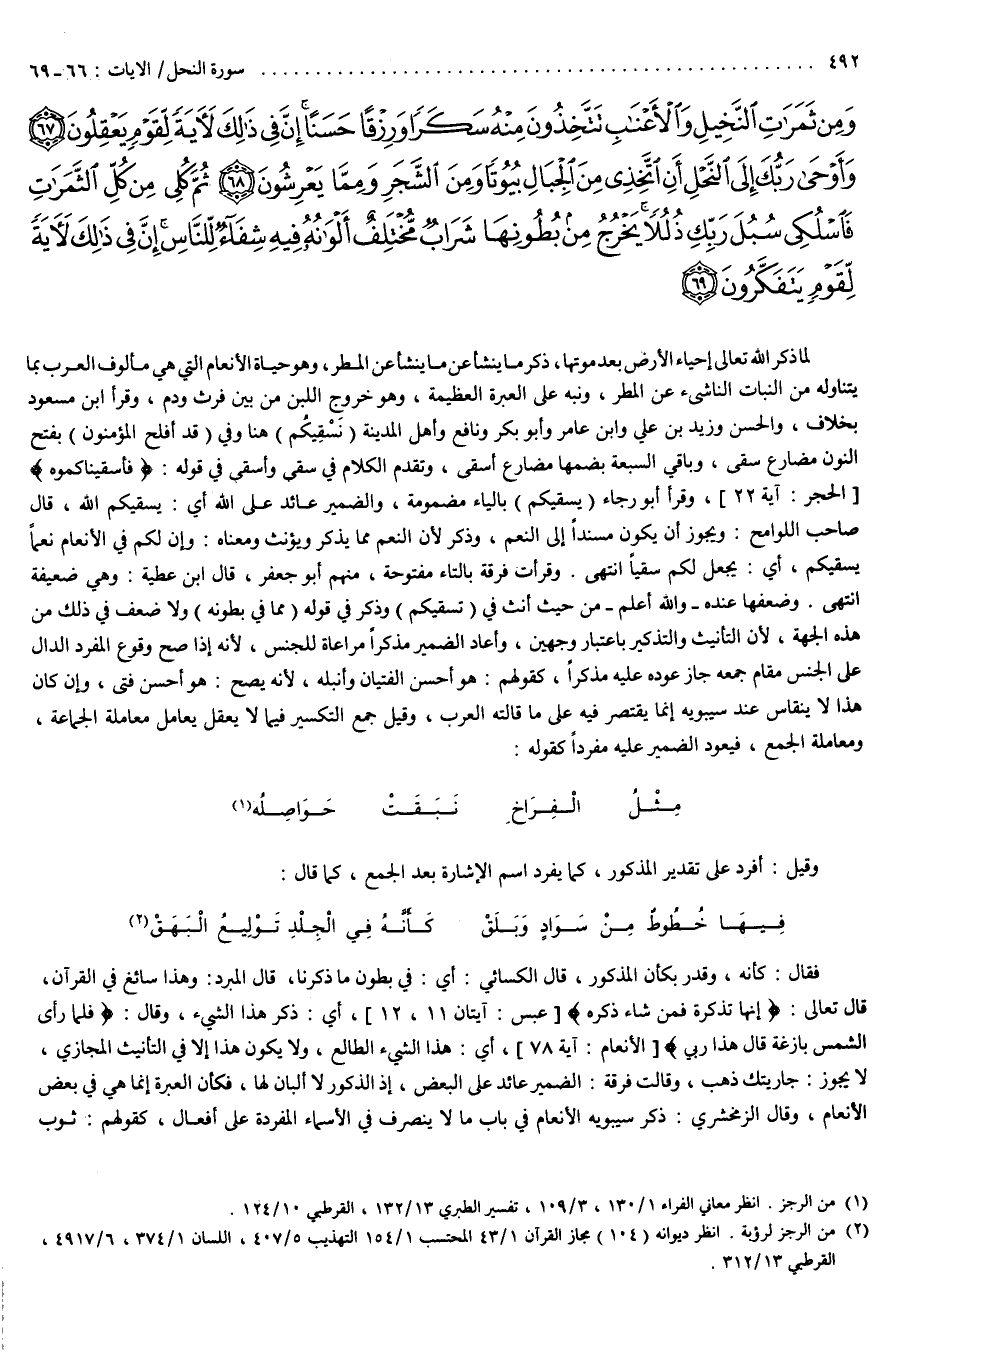 ٤٩٢ ........ سورة النحل/ الايات : ٦٦ - ٦٩
وَمِن ثَمَرَٰتِ ٱلنَّخِيلِ وَٱلْأَعْنَٰبِ تَتَّخِذُونَ مِنْهُ سَكَرًا وَرِزْقًا حَسَنًا ۗ إِنَّ فِى ذَٰلِكَ لَءَايَةً لِّقَوْمٍ يَعْقِلُونَ ٦٧
وَأَوْحَىٰ رَبُّكَ إِلَى ٱلنَّحْلِ أَنِ ٱتَّخِذِى مِنَ ٱلْجِبَالِ بُيُوتًا وَمِنَ ٱلشَّجَرِ وَمِمَّا يَعْرِشُونَ ٦٨ ثُمَّ كُلِى مِن كُلِّ ٱلثَّمَرَٰتِ
فَٱسْلُكِى سُبُلَ رَبِّكِ ذُلُلًا ۚ يَخْرُجُ مِنۢ بُطُونِهَا شَرَابٌ مُّخْتَلِفٌ أَلْوَٰنُهُۥ فِيهِ شِفَآءٌ لِّلنَّاسِ ۗ إِنَّ فِى ذَٰلِكَ لَءَايَةً
لِّقَوْمٍ يَتَفَكَّرُونَ ٦٩
لما ذكر الله تعالى إحياء الأرض بعد موتها، ذكر ما ينشأ عن ما ينشأ عن المطر، وهو حياة الأنعام التي هي مألوف العرب بما
يتناوله من النبات الناشىء عن المطر ، ونبه على العبرة العظيمة ، وهو خروج اللبن من بين فرث ودم ، وقرأ ابن مسعود
بخلاف ، والحسن وزيد بن علي وابن عامر وأبو بكر ونافع وأهل المدينة ( نَسْقِيكُم ) هنا وفي ( قد أفلح المؤمنون ) بفتح
النون مضارع سقى ، وباقي السبعة بضمها مضارع أسقى ، وتقدم الكلام في سقى وأسقى في قوله : ﴿ فأسقيناكموه ﴾
[ الحجر : آية ٢٢ ] ، وقرأ أبو رجاء ( يسقيكم ) بالياء مضمومة ، والضمير عائد على الله أي : يسقيكم الله ، قال
صاحب اللوامح : ويجوز أن يكون مسنداً إلى النعم ، وذكر لأن النعم مما يذكر ويؤنث ومعناه : وإن لكم في الأنعام نعماً
يسقيكم ، أي : يجعل لكم سقياً انتهى . وقرأت فرقة بالتاء مفتوحة ، منهم أبو جعفر ، قال ابن عطية : وهي ضعيفة
انتهى . وضعفها عنده - والله أعلم - من حيث أنث في ( تسقيكم ) وذكر في قوله ( مما في بطونه ) ولا ضعف في ذلك من
هذه الجهة ، لأن التأنيث والتذكير باعتبار وجهين ، وأعاد الضمير مذكراً مراعاة للجنس ، لأنه إذا صح وقوع المفرد الدال
على الجنس مقام جمعه جاز عوده عليه مذكراً ، كقولهم : هو أحسن الفتيان وأنبله ، لأنه يصح : هو أحسن فتى ، وإن كان
هذا لا ينقاس عند سيبويه إنما يقتصر فيه على ما قالته العرب ، وقيل جمع التكسير فيما لا يعقل يعامل معاملة الجماعة ،
ومعاملة الجمع ، فيعود الضمير عليه مفرداً كقوله :
مِثْلُ الْفِرَاخِ نَبَقَتْ حَوَاصِلُه(١)
وقيل : أفرد على تقدير المذكور ، كما يفرد اسم الإشارة بعد الجمع ، كما قال :
فِيهَا خُطُوطٌ مِنْ سَوَادٍ وَبَلَقْ كَأَنَّهُ فِي الْجِلْدِ تَوْلِيعُ الْبَهَقْ(٢)
فقال : كأنه ، وقدر بكأن المذكور ، قال الكسائي : أي : في بطون ما ذكرنا، قال المبرد: وهذا سائغ في القرآن،
قال تعالى : ﴿ إنها تذكرة فمن شاء ذكره ﴾ [ عبس : آيتان ١١ ، ١٢ ] ، أي : ذكر هذا الشيء ، وقال : ﴿ فلما رأى
الشمس بازغة قال هذا ربي ﴾ [ الأنعام : آية ٧٨ ] ، أي : هذا الشيء الطالع ، ولا يكون هذا إلا في التأنيث المجازي ،
لا يجوز : جاريتك ذهب ، وقالت فرقة : الضمير عائد على البعض ، إذ الذكور لا ألبان لها ، فكأن العبرة إنما هي في بعض
الأنعام ، وقال الزمخشري : ذكر سيبويه الأنعام في باب ما لا ينصرف في الأسماء المفردة على أفعال ، كقولهم : ثوب
(١) من الرجز . انظر معاني الفراء ١٣٠/١ ، ١٠٩/٣ ، تفسير الطبري ١٣٢/١٣ ، القرطبي ١٢٤/١٠ .
(٢) من الرجز لرؤبة . انظر ديوانه ( ١٠٤ ) مجاز القرآن ٤٣/١ المحتسب ١٥٤/١ التهذيب ٤٠٧/٥ ، اللسان ٣٧٤/١ ، ٤٩١٧/٦ ،
القرطبي ٣١٢/١٣ .